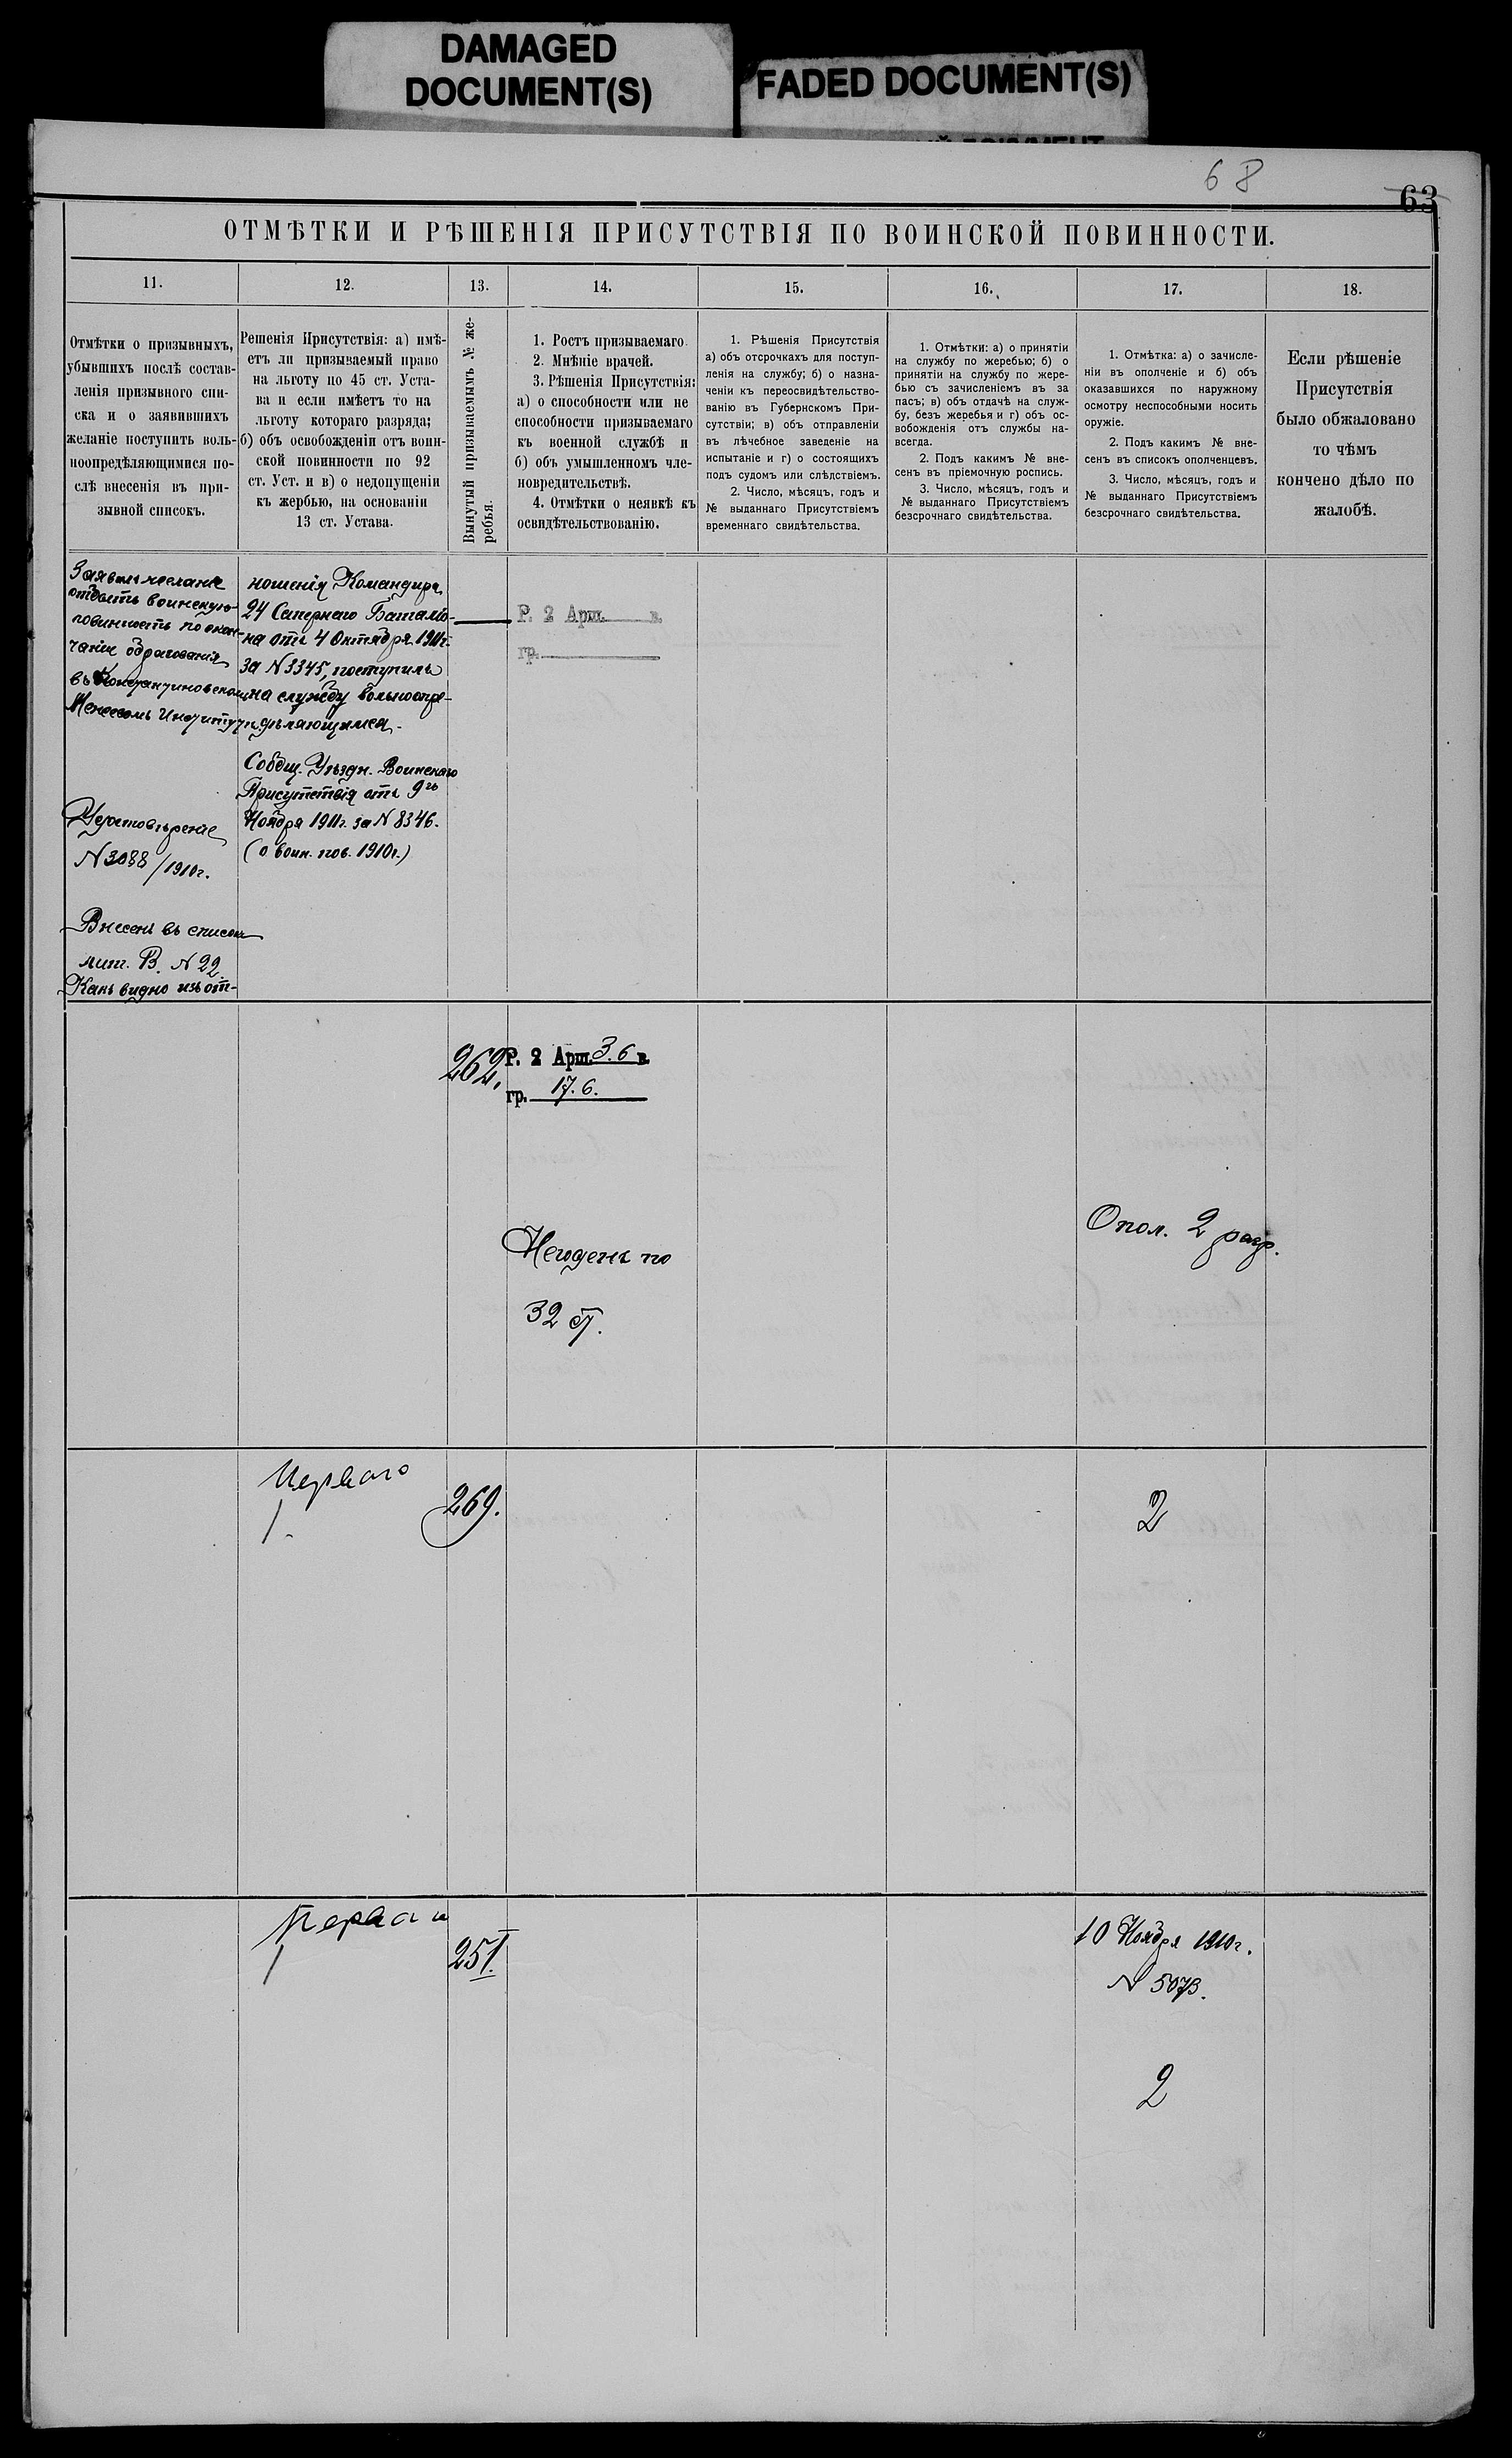 DAMAGED
DOCUMENT(S)
FADED DOCUMENT(S)
68
63
ОТМѢТКИ И РѢШЕНІЯ ПРИСУТСТВІЯ ПО ВОИНСКОЙ ПОВИННОСТИ.
11.
12.
13.
14.
15.
16.
17.
18.
Отмѣтки о призывныхъ,
убывшихъ послѣ состав-
ленія призывного спи-
ска и о заявившихъ
желаніе поступить воль-
ноопредѣляющимися по-
слѣ внесенія въ при-
зывной списокъ.
Решенія Присутствія: а) имѣ-
етъ ли призываемый право
на льготу по 45 ст. Уста-
ва и если имѣетъ то на
льготу котораго разряда;
б) объ освобожденіи отъ воин-
ской повинности по 92
ст. Уст. и в) о недопущеніи
къ жербью, на основаніи
13 ст. Устава.
Вынутый призываемымъ № же-
ребья.
1. Ростъ призываемаго.
2. Мнѣніе врачей.
3. Рѣшенія Присутствія:
а) о способности или не
способности призываемаго
къ военной службѣ и
б) объ умышленномъ чле-
новредительствѣ.
4. Отмѣтки о неявкѣ къ
освидѣтельствованію.
1. Рѣшенія Присутствія
а) объ отсрочкахъ для поступ-
ленія на службу; б) о назна-
ченіи къ переосвидѣтельство-
ванію въ Губернскомъ При-
сутствіи; в) объ отправленіи
въ лѣчебное заведеніе на
испытаніе и г) о состоящихъ
подъ судомъ или слѣдствіемъ.
2. Число, мѣсяцъ, годъ и
№ выданнаго Присутствіемъ
временнаго свидѣтельства.
1. Отмѣтки: а) о принятіи
на службу по жеребью; б) о
принятіи на службу по жере-
бью съ зачисленіемъ въ за
пасъ; в) объ отдачѣ на служ-
бу, безъ жеребья и г) объ ос-
вобожденія отъ службы на-
всегда.
2. Подъ какимъ № вне-
сенъ въ пріемочную роспись.
3. Число, мѣсяцъ, годъ и
№ выданнаго Присутствіемъ
безсрочнаго свидѣтельства.
1. Отмѣтка: а) о зачисле-
ніи въ ополченіе и б) объ
оказавшихся по наружному
осмотру неспособными носить
оружіе.
2. Подъ какимъ № вне-
сенъ въ списокъ ополченцевъ.
3. Число, мѣсяцъ, годъ и
№ выданнаго Присутствіемъ
безсрочнаго свидѣтельства.
Если рѣшеніе
Присутствія
было обжаловано
то чѣмъ
кончено дѣло по
жалобѣ.
Заявилъ желаніе
отбыть воинскую
повинность по окон-
чаніи образованія
въ Константиновскомъ
Межевомъ Институтѣ.
Удостовѣреніе
N 3088/1910г.
Внесенъ въ списокъ
лит. В. N 22.
Какъ видно изъ от-
ношенія Командира
24 Сапернаго Баталіо-
на отъ 4 Октября 1911г.
за N 3345, поступилъ
на службу вольноопре-
дѣляющимся.
Сообщ. Уѣздн. Воинскаго
Присутствія отъ 9го
Ноября 1911г. за N 8346.
(о воин. пов. 1910г.)
Р. 2 Арш. в.
гр.
262.
Р. 2 Арш. 3.6 в.
гр. 17.6.
Негоденъ по
32 ст.
Опол. 2 разр.
Перваго
1.
269.
2
Перваго
1
251.
10 Ноября 1910г.
N 5073.
2